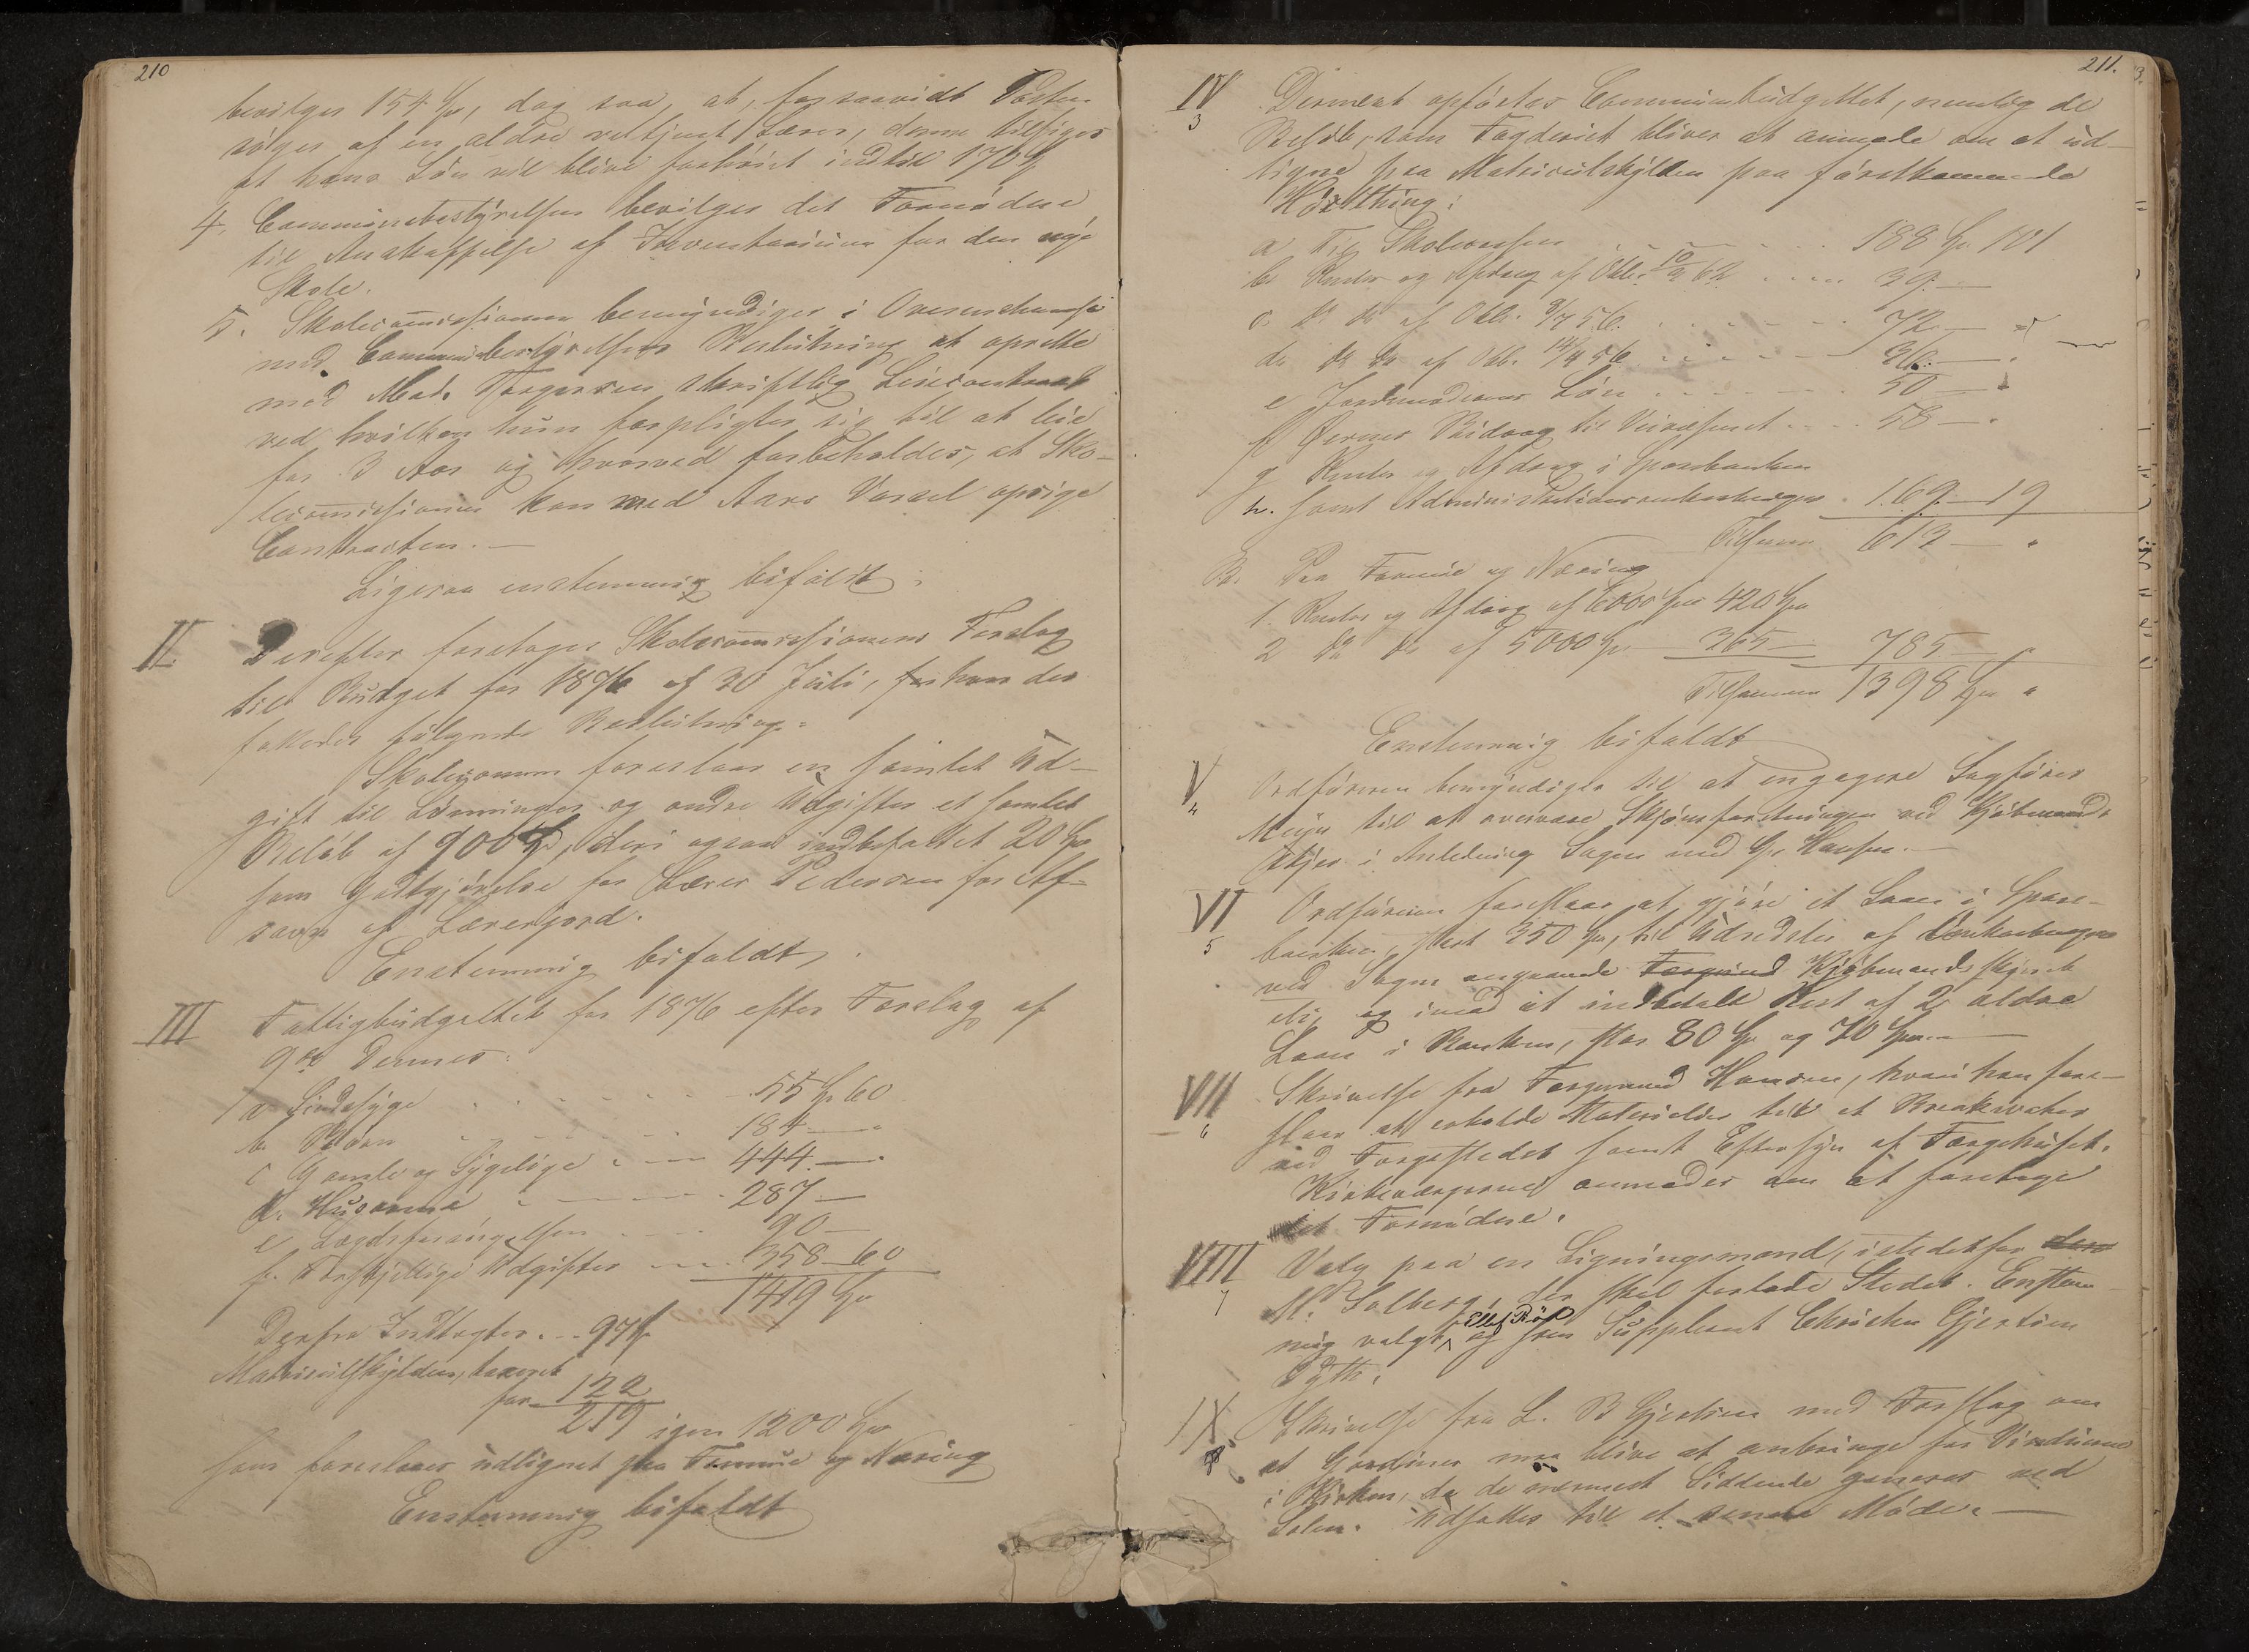 210
bevilges 154 Spd, dog saa, at, forsaavidt Posten
søges af en ældre veltjent Lærer, denne tilsiges
at hans Løn vil blive forhøiet indtil 170 Spd
4. Communebestyrelsen bevilges det Fornødne
til Anskaffelse af Inventarium for den nye
Skole.
5. Skolecommissionen bemyndiges i Overensstemmelse
med Communebestyrelsens Beslutning at oprette
med Mad. Torgersen skriftlig Leiecontract
ved hvilken hun forpligter sig til at leie
for 3 Aar og hvorved forbeholdes, at Sko-
lecommissionen kan med Aars Varsel opsige
Contracten. —
Ligesaa enstemmig bifaldt.
II. Derefter foretoges Skolecommissionens Forslag
til Budget for 1876 af 30 Juli, hvorom der
fattedes følgende Beslutning:
Skolecomm foreslaar en samlet Ud-
gift til Lønninger og andre Udgifter et samlet
Beløb af 900 Spd, deri ogsaa indbefattet 20 Spd
som Godtgjørelse for Lærer Pedersen for Af-
savn af Lærerjord.
Enstemmig bifaldt.
III Fattigbudgettet for 1876 efter Forslag af
9de Dennes:
a Sindssyge 55 Spd 60
b. Børn 184 — "
c Gamle og Sygelige 444 — "
d. Husarme 287 —
e Lægdsforsørgelsen 90 —
f. Forskjellige Udgifter 358 — 60
1419 Spd
Derfra Indtægter 97 Spd
Matriculskylden, taxeret
for 122
219 igjen 1200 Spd
som foreslaaes udlignet paa Formue og Næring
Enstemmig bifaldt
211.
IV Dernæst opførtes Communebudgettet, nemlig de
3
Beløb, som Fogderiet bliver at anmode om at ud-
ligne paa Matriculskylden paa førstkommende
Høstthing:
a Til Skolecassen 188 Spd 101
b Renter og Afdrag af Obl. 10/2 62 39 —
c. do do af Obl. 9/7 56 72 — "
d. do do af Obl. 14/4 56 36 — "
e Jordmoderens Løn 50 — "
f Øernes Bidrag til Veivæsenet 58 — "
g Renter og Afdrag i Sparebanken
h. samt Administrationsomkostninger 169 — 19
Tilsammen 613 — "
B. Paa Formue og Næring
1. Renter og Afdrag af 6000 Spd 420 Spd
2 do do af 5000 Spd 365 — 785 — "
Tilsammen 1398 Spd "
Enstemmig bifaldt
V Ordføreren bemyndiges til at engagere Sagfører
4
til at overvære Skjønsforretningen ved Kjøbmand-
skjær i Anledning Sagen med Hansen. —
VI Ordføreren foreslaar at gjøre et Laan i Spare-
5
banken, stort 350 Spd, til Udredelse af Omkostninger
ved Sagen angaaende Kjøbmandsskjæret
etc, og imod at indbetale Rest af 2 ældre
Laan i Banken, stor 80 Spd og 70 Spd. —
VII Skrivelse fra Færgemand Hansen, hvori han fore-
6
slaar at erholde Materialier til et Breakwater
ved Færgestedet samt Eftersyn af Færgehuset.
Kirkeværgerne anmodes om at foretage
det Fornødne.
VIII Valg paa en Ligningsmand, istedetfor
7
M. Solberg, der skal forlade Stedet. Enstem-
mig valgt Ellef Röd og som Suppleant Christen Gjertsen
Dyth.
IX Skrivelse fra L. B Gjertsen med Forslag om
8
at Gardiner maa blive at anbringe for Vinduerne
i Kirken, da de nærmest Siddende generes ved
Solen. Udsattes til et senere Møde. —